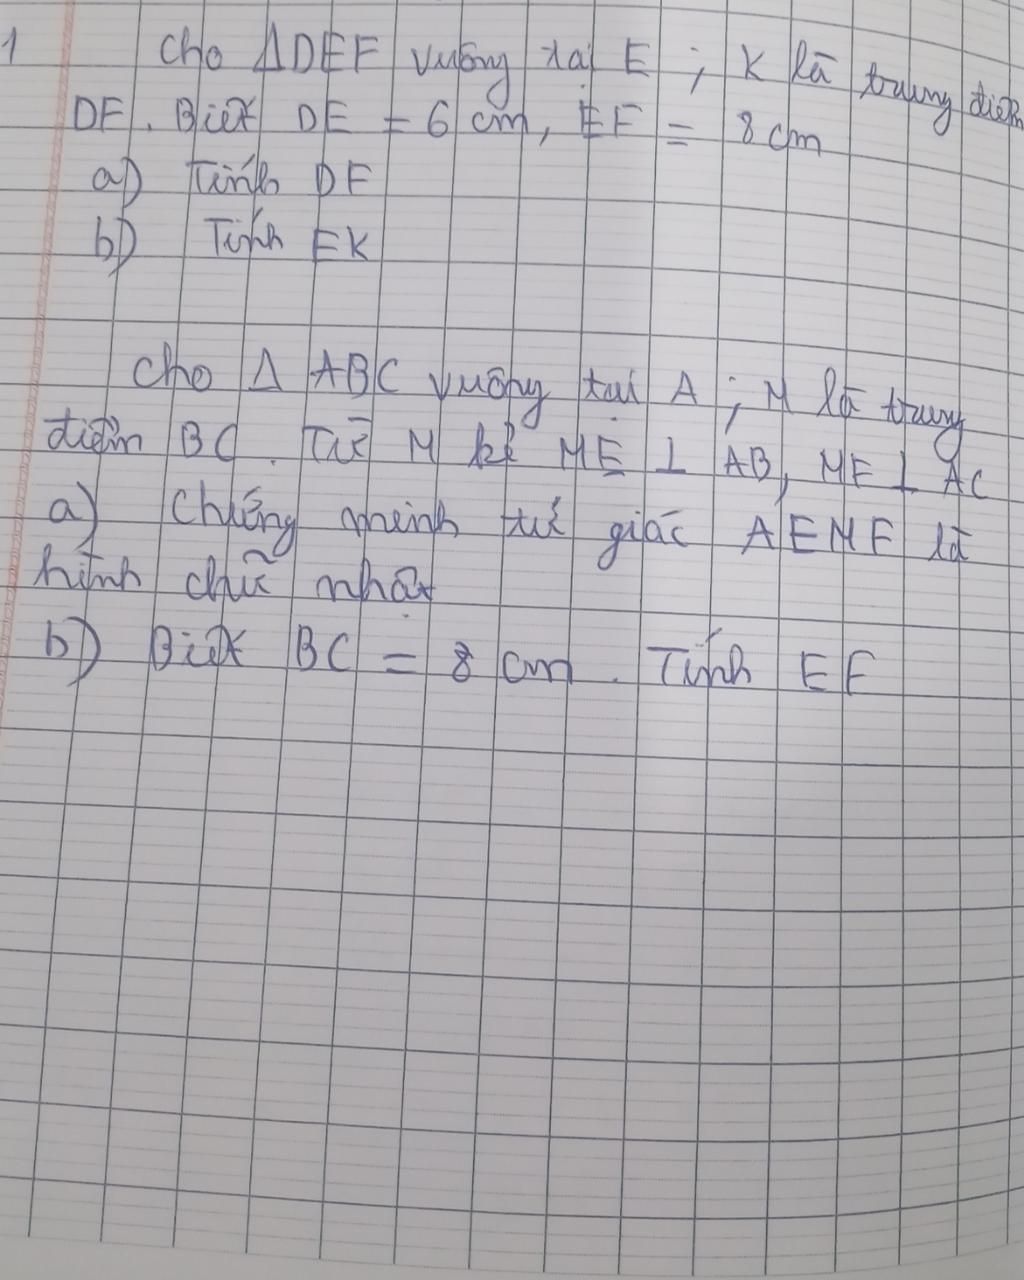 1 Cho ΔDEF vuông tại E ; K là trung điểm
DF. Biết DE = 6 cm, EF = 8 cm
a) Tính DF
b) Tính EK
Cho Δ ABC vuông tại A ; M là trung
điểm BC. Từ M kẻ ME ⊥ AB, MF ⊥ AC
a) Chứng minh tứ giác AEMF là
hình chữ nhật
b) Biết BC = 8 cm. Tính EF